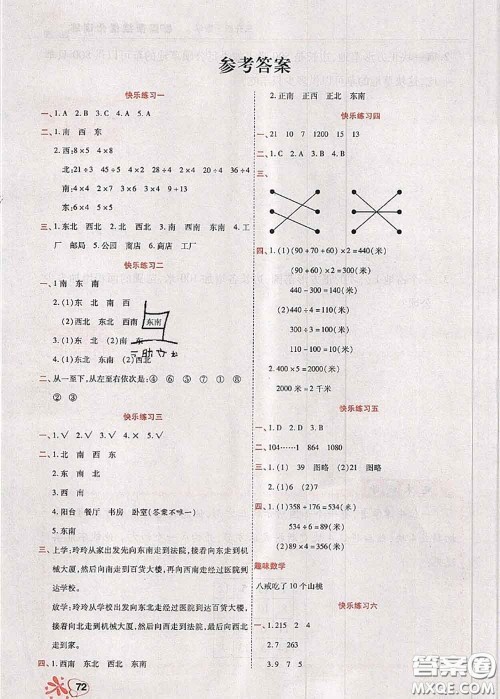 参考答案
快乐练习一
一、1. A 2. B 3. C 4. A 5. A
二、1. 南 西 东
2. 西:8×5 4×8
北:21÷3 45÷5 4×2 24÷4
南:21÷7 3×2 9×3 4×6
东:4×5 6×5
三、1. 东北 西北 2. 西北 3. 西南 东南 4. 工
厂 邮局 5. 公园 商店 6. 商店 工厂
快乐练习二
一、1. 南 东南
2. (1)东 北 南 西
(2)西北 东北 西南 东南
3. (1)东 北 (2)南 东
4. (1)东北 东南 (2)西北
二、从一至下,从左至右依次是:④ ⑥ ⑦ ① ⑤ ⑧
② ③
快乐练习三
一、1. √ 2. √ 3. √ 4. √
二、1. 北 南 西 东
2. 东 南 北
3. 西 南
4. 阳台 餐厅 书房 卧室(答案不唯一)
5. 东南
三、上学:玲玲从家出发先向东南走到法院,接着向东走到机
械大厦,然后向南走到百货大楼,再向西南走经过医院到
达学校。
放学:玲玲从学校出发向东北走经过医院到百货大楼,
接着向北走到机械大厦,然后向西走到法院,最后向西北
走到家。
四、1. 西南 东北 西北 东南
72
2. 正南 正西 正北 东南
快乐练习四
一、21 10 7 1200 15 13
二、1. C 2. B 3. C 4. B
三、
四、1. (1)(90+70+60)×2=440(米)
(60+90)×2=300(米)
440-300=140(米)
(2)440÷4=110(米)
300÷3=100(米)
110-100=10(米)
2. 400×5=2000(米)
2000米=2千米
快乐练习五
一、1. D 2. D 3. B 4. C
二、104……1 864 1080
三、1. (1) 39 图略 图略
2. (1)6 (2)7
四、(1)358+176=534(米)
534÷6=89(米)
(2)534÷89=6(米)
趣味数学
八戒吃了10个山桃
快乐练习六
一、1. 215 2. 4
2. 73 291
3. 9 7 5
MXQE.COM